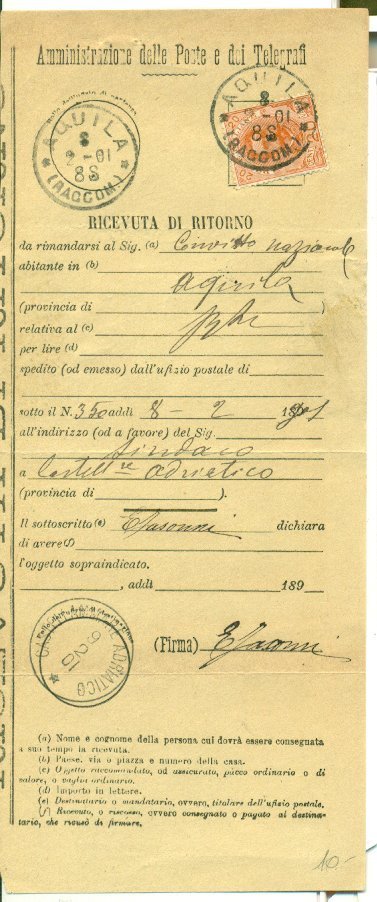 Amministrazione delle Poste e dei Telegrafi
AQUILA
8
2-01
8S
(RACCOM.)
AQUILA
8
2-01
8S
(RACCOM.)
RICEVUTA DI RITORNO
da rimandarsi al Sig. (a) Convitto nazionale
abitante in (b)
Aquila
(provincia di )
relativa al (c)
per lire (d)
spedito (od emesso) dall'ufizio postale di
sotto il N. 350 addì 8 - 2 1901
all'indirizzo (od a favore) del Sig.
Sindaco
a Castell re Adriatico
(provincia di ).
Il sottoscritto (e) dichiara
di avere (f)
l'oggetto sopraindicato.
, addì 189
ADRIATICO
(Firma)
(a) Nome e cognome della persona cui dovrà essere consegnata
a suo tempo la ricevuta.
(b) Paese, via o piazza e numero della casa.
(c) Oggetto raccomandato, od assicurato, pacco ordinario o di
valore, o vaglia ordinario.
(d) Importo in lettere.
(e) Destinatario o mandatario, ovvero, titolare dell'ufizio postale.
(f) Ricevuto, o riscosso, ovvero consegnato o pagato al destina-
tario, che ricusò di firmare.
10.-